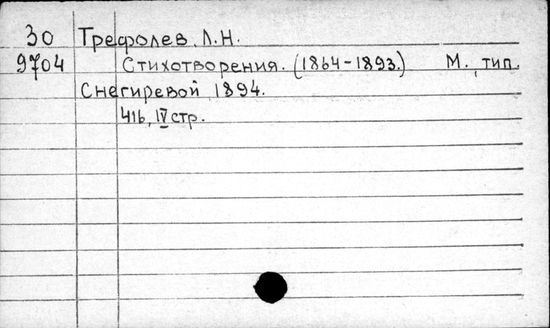 30 Трефолев, Л.Н.
9704 Стихотворения. (1864-1893.) М., тип.
Снегиревой, 1894.
416, IV стр.